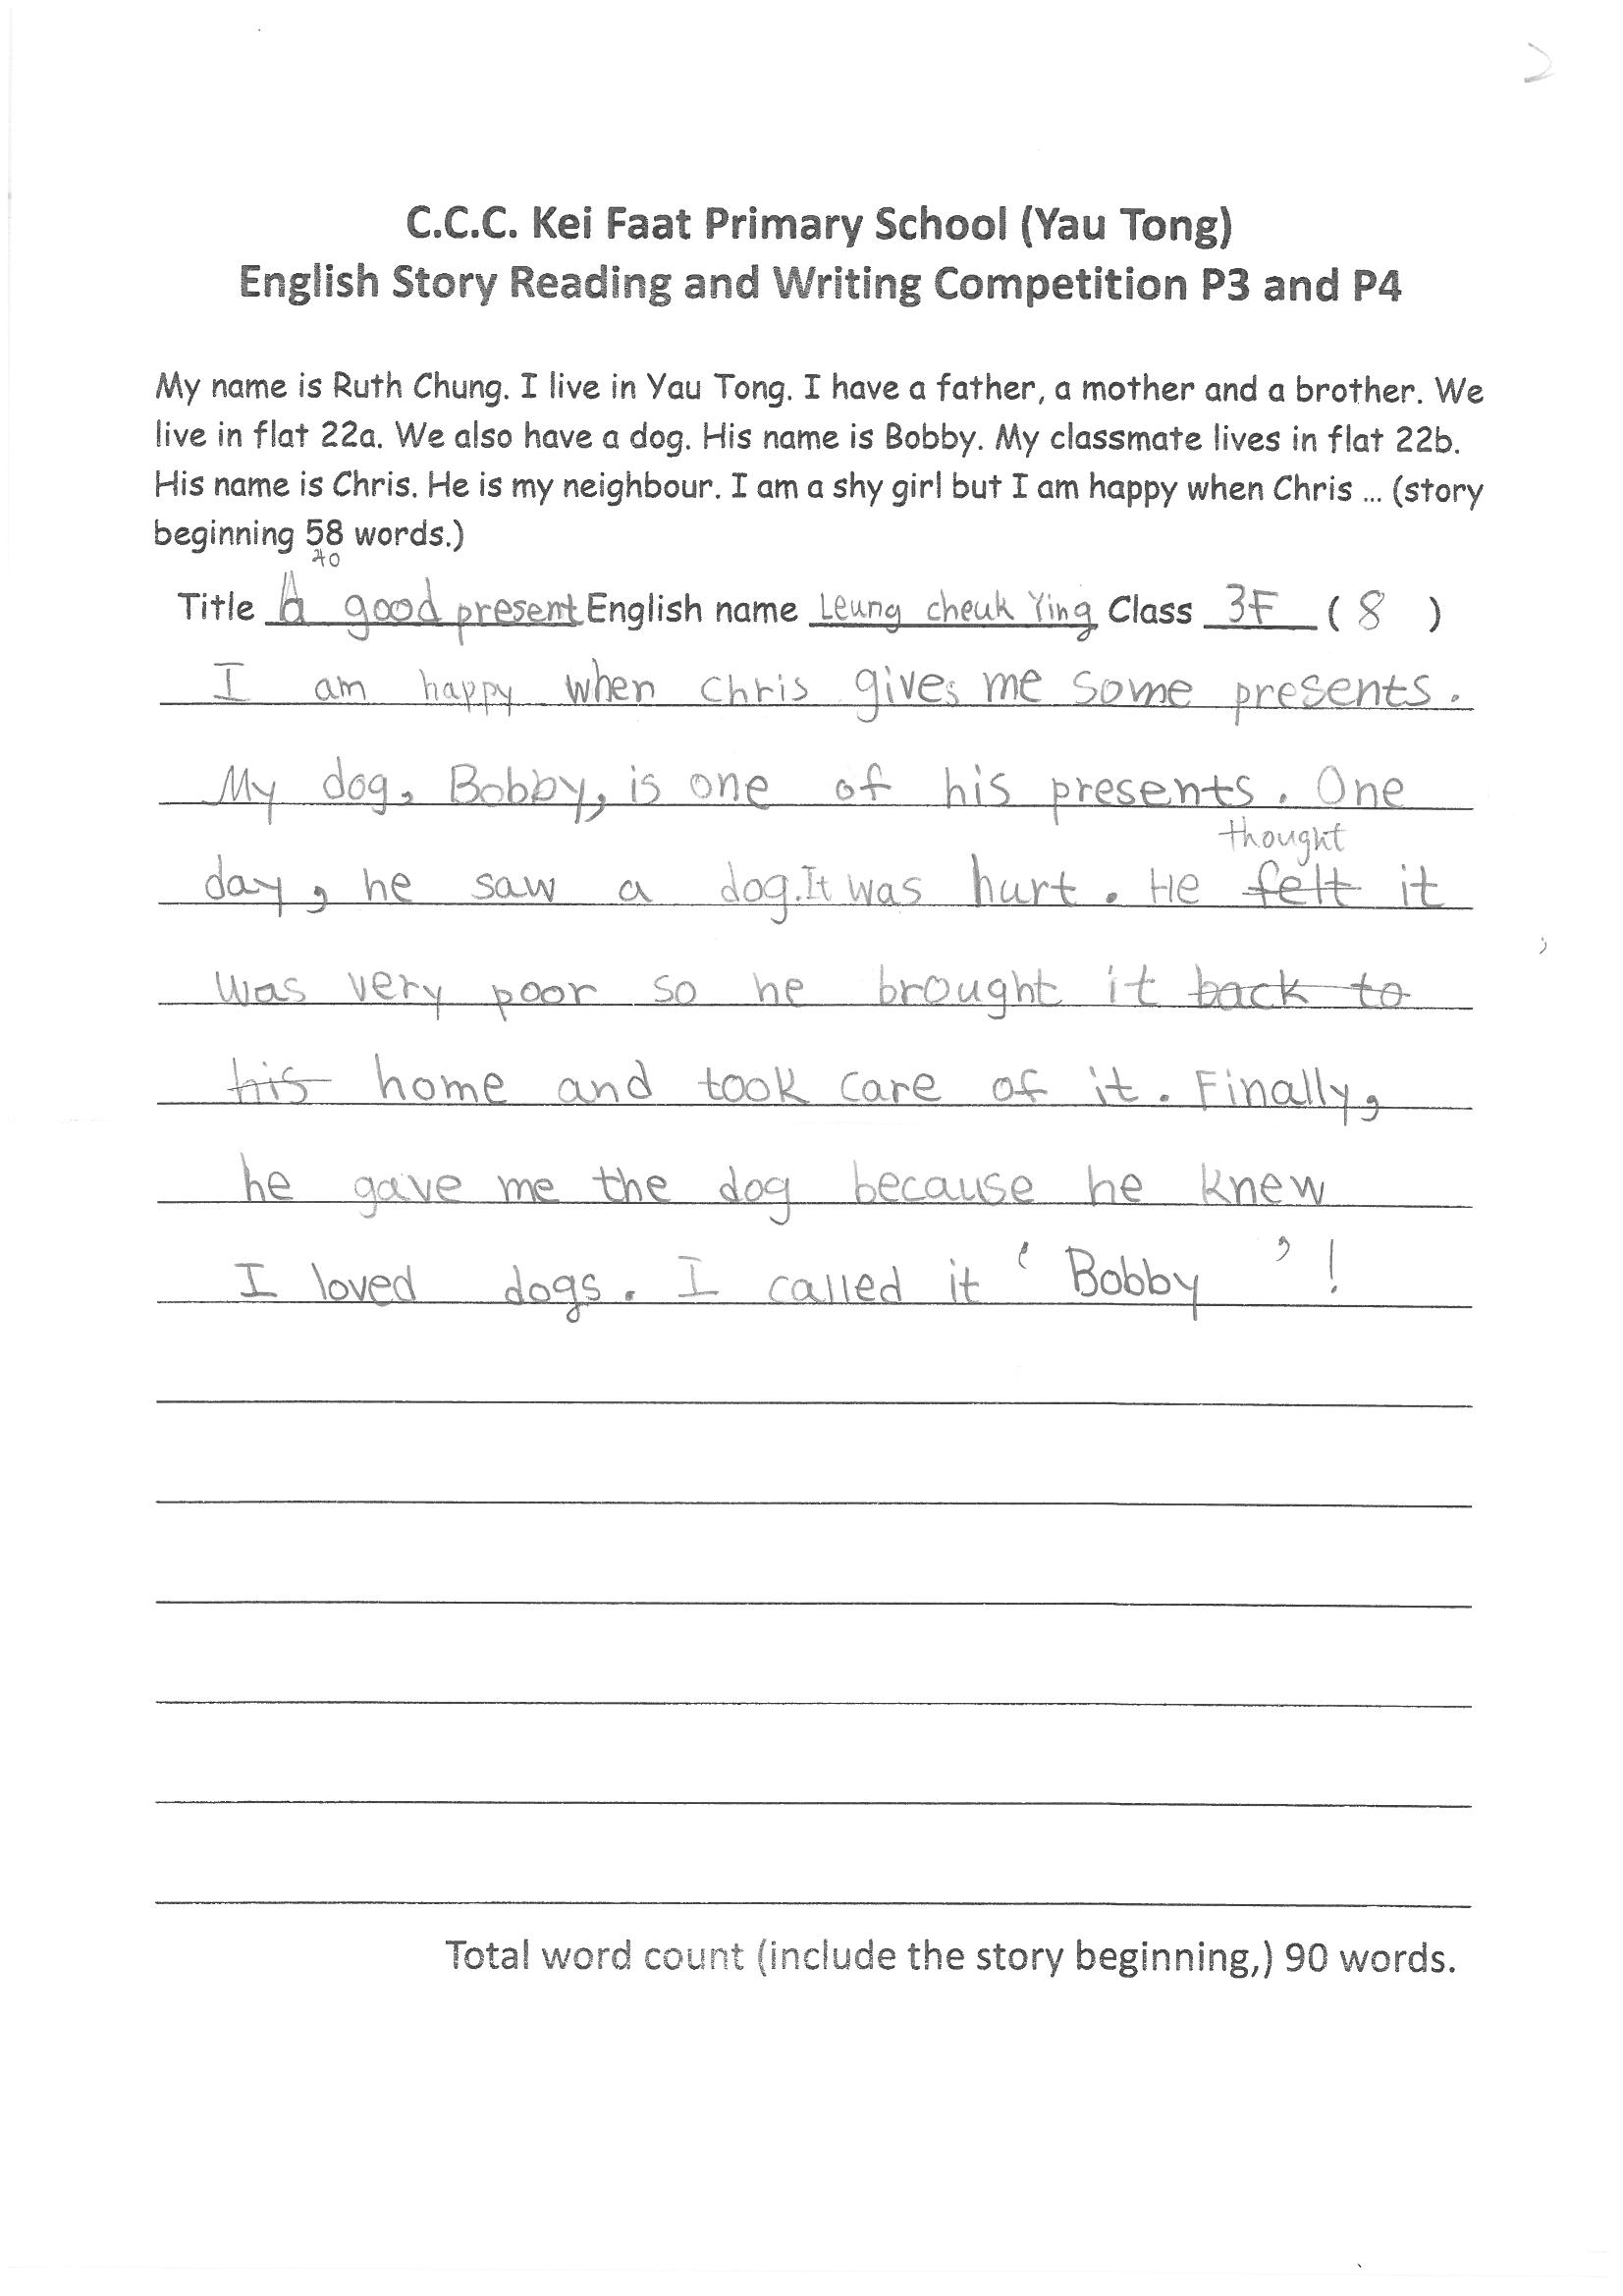 C.C.C. Kei Faat Primary School (Yau Tong)
English Story Reading and Writing Competition P3 and P4
My name is Ruth Chung. I live in Yau Tong. I have a father, a mother and a brother. We
live in flat 22a. We also have a dog. His name is Bobby. My classmate lives in flat 22b.
His name is Chris. He is my neighbour. I am a shy girl but I am happy when Chris ... (story
beginning 58 words.)
70
Title A good present English name Leung cheuk Ying Class 3F ( 8 )
I am happy when Chris gives me some presents.
My dog, Bobby, is one of his presents. One
thought
day, he saw a dog. It was hurt. He felt it
was very poor so he brought it back to
his home and took care of it. Finally,
he gave me the dog because he knew
I loved dogs. I called it ‘Bobby’!
Total word count (include the story beginning,) 90 words.